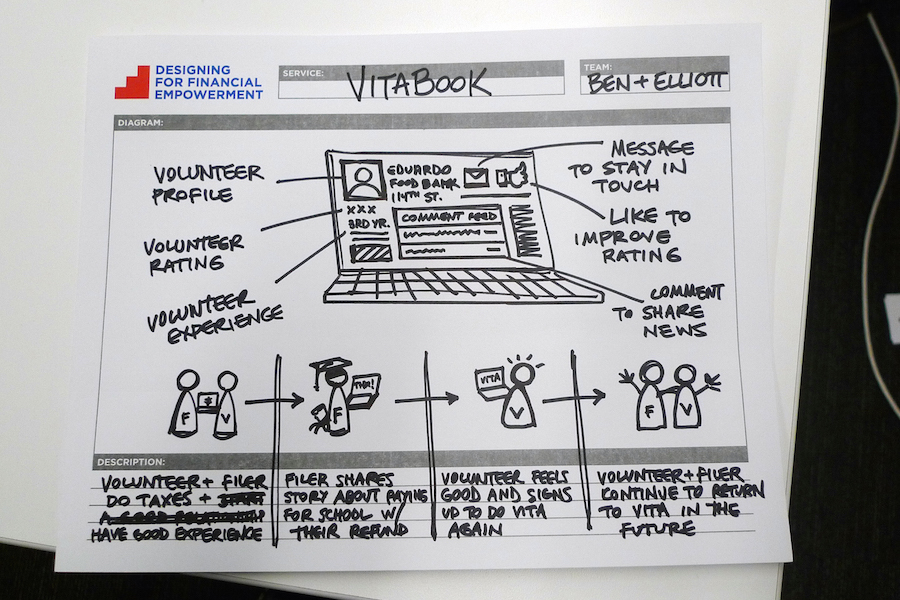 DESIGNING
FOR FINANCIAL
EMPOWERMENT
SERVICE:
VITABOOK
TEAM:
BEN + ELLIOTT
DIAGRAM:
VOLUNTEER
PROFILE
VOLUNTEER
RATING
VOLUNTEER
EXPERIENCE
EDUARDO
FOOD BANK
114TH ST.
XXX
3RD YR.
COMMENT FEED
MESSAGE
TO STAY IN
TOUCH
LIKE TO
IMPROVE
RATING
COMMENT
TO SHARE
NEWS
F
$
V
F
V
VITA
F
V
DESCRIPTION:
VOLUNTEER + FILER
DO TAXES +
HAVE GOOD EXPERIENCE
FILER SHARES
STORY ABOUT PAYING
FOR SCHOOL W/
THEIR REFUND
VOLUNTEER FEELS
GOOD AND SIGNS
UP TO DO VITA
AGAIN
VOLUNTEER + FILER
CONTINUE TO RETURN
TO VITA IN THE
FUTURE